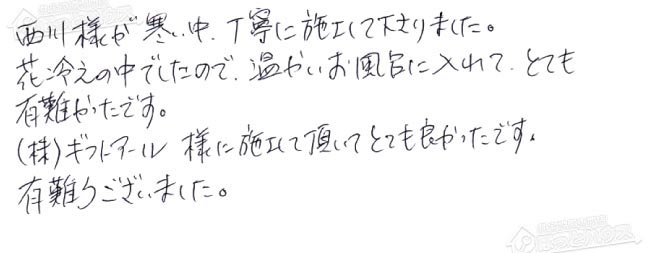 西川様が寒い中、丁寧に施工して下さりました。
花冷えの中でしたので、温かいお風呂に入れて、とても
有難かったです。
(株)ギフトアール 様に施工して頂いてとても良かったです。
有難うございました。